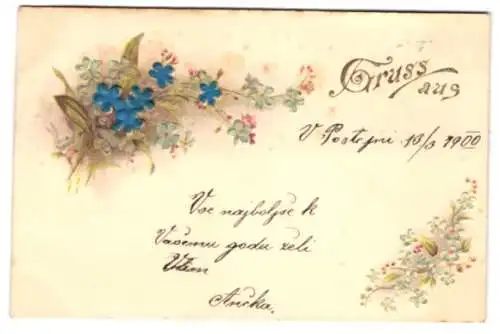 Gruss
aus
V Postojni 10/3 1900
Vse najboljše k
Vašemu godu želi
Ančka.